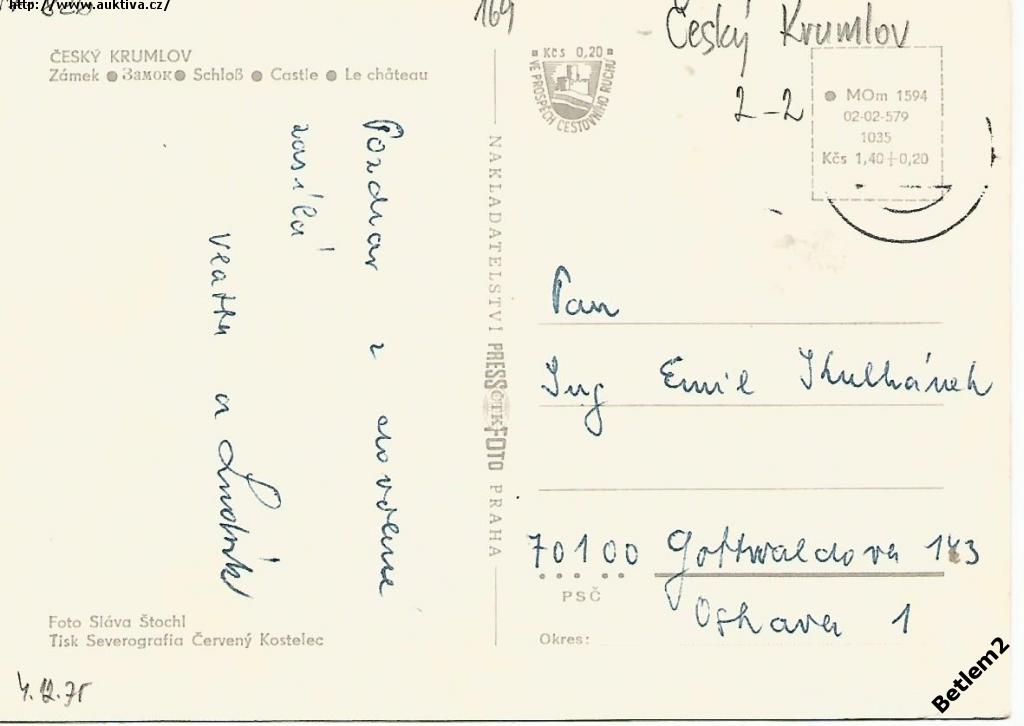 http://www.auktiva.cz/
169
Český Krumlov
2-2
ČESKÝ KRUMLOV
Zámek ● Замок ● Schloß ● Castle ● Le château
Kčs 0,20
VE PROSPĚCH CESTOVNÍHO RUCHU
MOm 1594
02-02-579
1035
Kčs 1,40+0,20
Pozdrav z dovolené
zasílá
a
NAKLADATELSTVÍ PRESSFOTO PRAHA
ČTK
Pan
Ing Emil Kulhánek
70100 Gottwaldova 143
PSČ
Ostrava 1
Okres:
Foto Sláva Štochl
Tisk Severografia Červený Kostelec
4.12.75
Betlem2